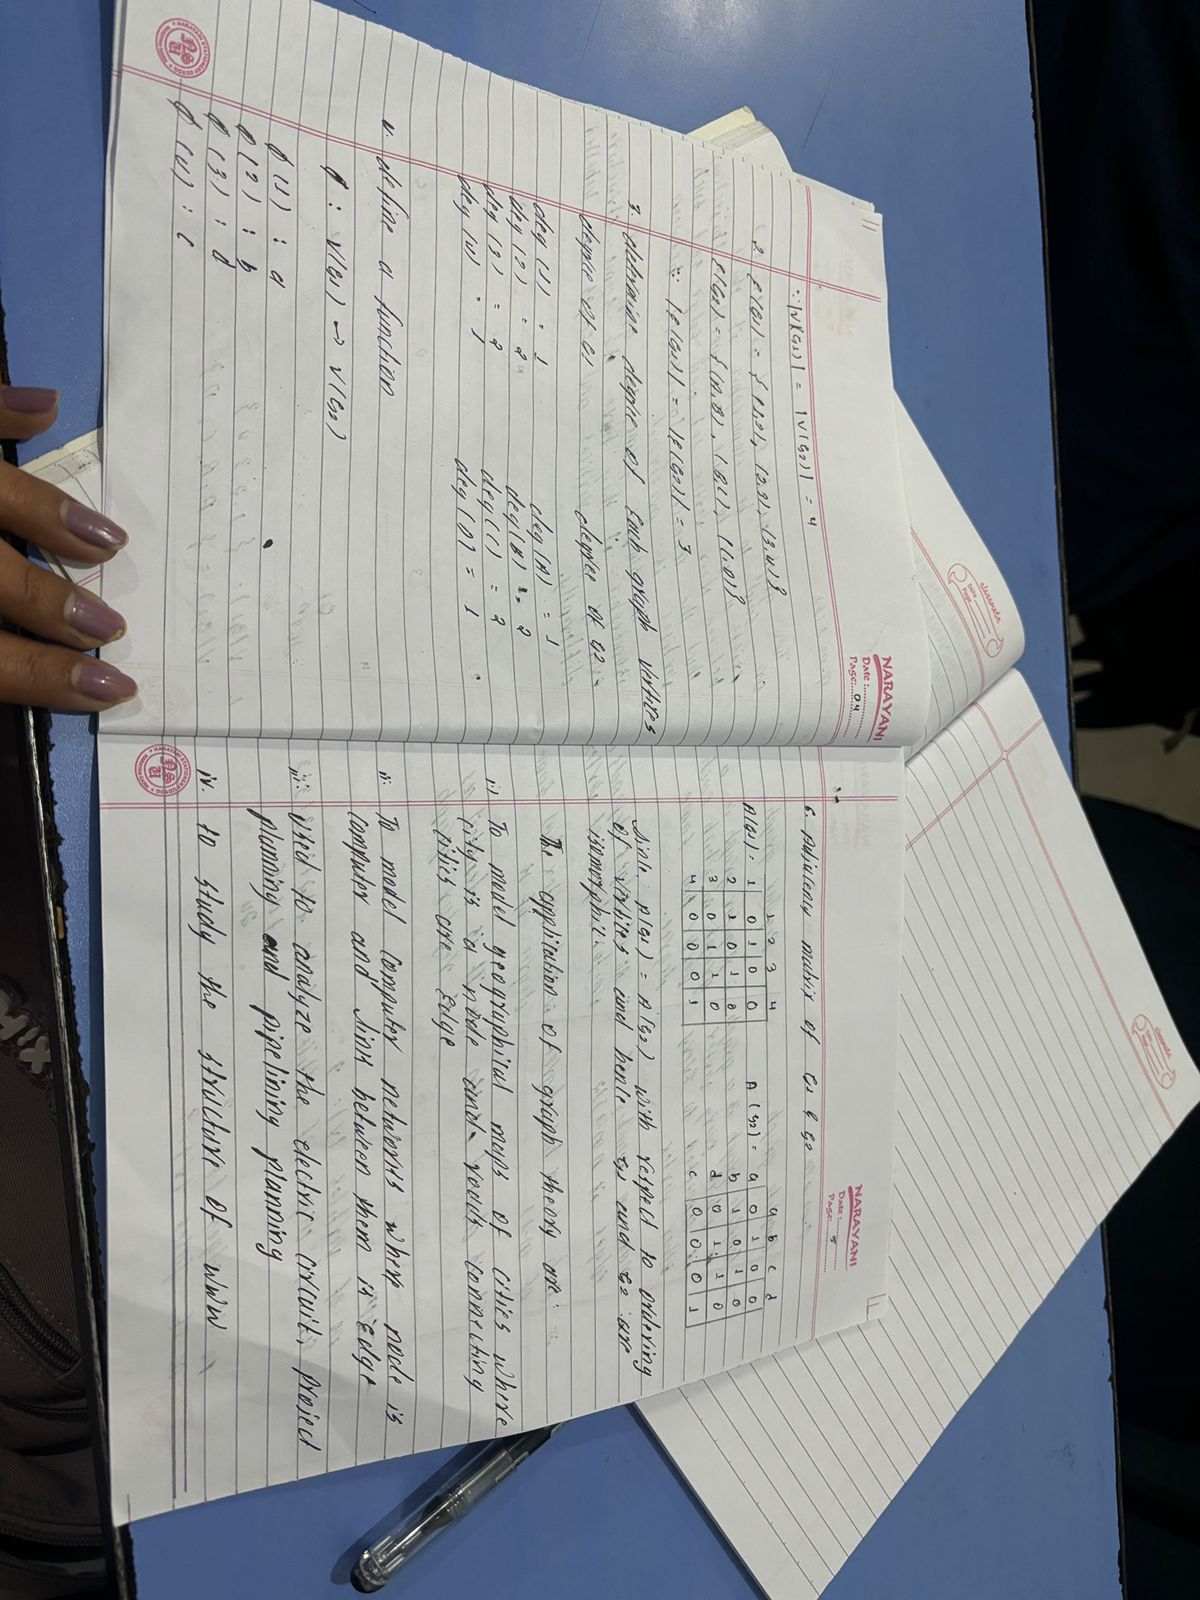 classmate
Date
Page
classmate
Date
Page
NARAYANI
Date:
Page: 04
∵ |V(G1)| = |V(G2)| = 4
2. E(G1) = {(1,2), (2,3), (3,4)}
E(G2) = {(A,B), (B,C), (C,D)}
∵ |E(G1)| = |E(G2)| = 3
3. determine degree of Each graph vertices
degree of G1 degree of G2
deg (1) = 1 deg(A) = 1
deg (2) = 2 deg(B) = 2
deg (3) = 2 deg(C) = 2
deg (4) = 1 deg(D) = 1
4. define a function
ϕ : V(G1) → V(G2)
ϕ (1) : a
ϕ (2) : b
ϕ (3) : d
ϕ (4) : c
NSU
NARAYANI
Date:
Page: 5
5. Adjacency matrix of G1 & G2
1 2 3 4 a b c d
A(G1) : 1 0 1 0 0 A (G2) = a 0 1 0 0
2 1 0 1 0 b 1 0 1 0
3 0 1 1 0 d 0 1 1 0
4 0 0 0 1 c 0 0 0 1
Since A(G1) = A(G2) with respect to ordering
of vertices and hence G1 and G2 are
isomorphic.
The application of graph theory are:
i.) To model geographical maps of cities where
city is a node and roads connecting
cities are Edge
ii. To model computer networks where node is
computer and link between them is Edge
iii. Used to analyze the electric circuit, project
planning and pipelining planning
iv. to study the structure of WWW
NSU